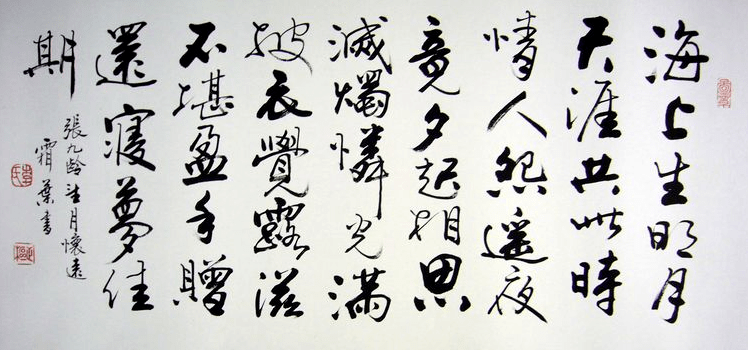 海上生明月
天涯共此時
情人怨遥夜
竟夕起相思
滅燭憐光滿
披衣覺露滋
不堪盈手贈
還寢夢佳
期
張九齡望月懷遠
霜葉書